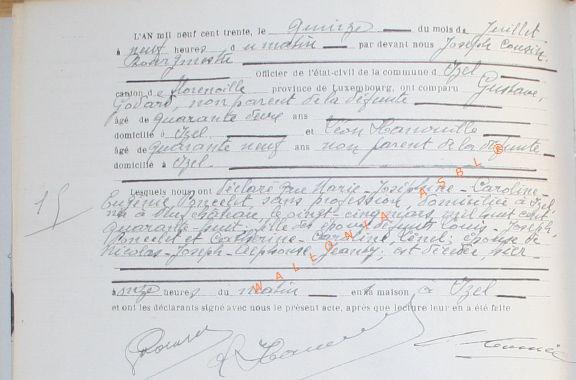 L'AN mil neuf cent trente, le quinze du mois de Juillet
à neuf heures du matin par devant nous Joseph
Bourgmestre
Officier de l'état-civil de la commune d'Izel
canton de Florenville province de Luxembourg, ont comparu Gustave,
Godart, non parent de la défunte
âgé de quarante deux ans
domicilié à Izel. et Léon Hanouille
âgé de quarante neuf ans non parent de la défunte
domicilié à Izel.
15
Lesquels nous ont déclaré que Marie-Joséphine-Caroline-
Eugénie Poncelet, sans profession, domiciliée à Izel,
née à Neufchâteau, le vingt-cinq mars mil huit cent
quarante-huit, fille des époux défunts Louis-Joseph,
Poncelet et Catherine-Caroline, épouse de
Nicolas-Joseph-Alphonse, est décédée hier
à onze heures du matin en sa maison à Izel
et ont les déclarants signé avec nous le présent acte, après que lecture leur en a été faite
WALLONIA ASBL ®